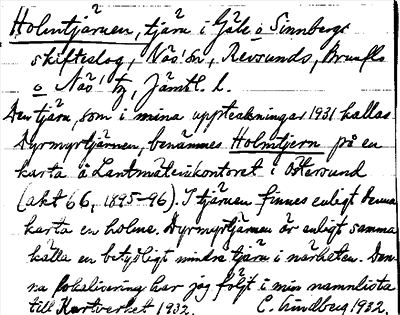 Holmtjärnen, tjärn i Gåle o Sinnbergs
skifteslag, Näs! sn, Revsunds, Brunflo
o Näs! tg, Jämtl. l.
Den tjärn, som i mina uppteckningar 1931 kallas
Dyrmyrtjärnen, benämnes Holmtjern på en
karta å Lantmäterikontoret i Östersund
(akt 66, 1895-96). I tjärnen finnes enligt denna
karta en holme. Dyrmyrtjärnen är enligt samma
källa en betydligt mindre tjärn i närheten. Den-
na lokalisering har jag följt i min namnlista
till Kartverket 1932. C. Lindberg 1932.